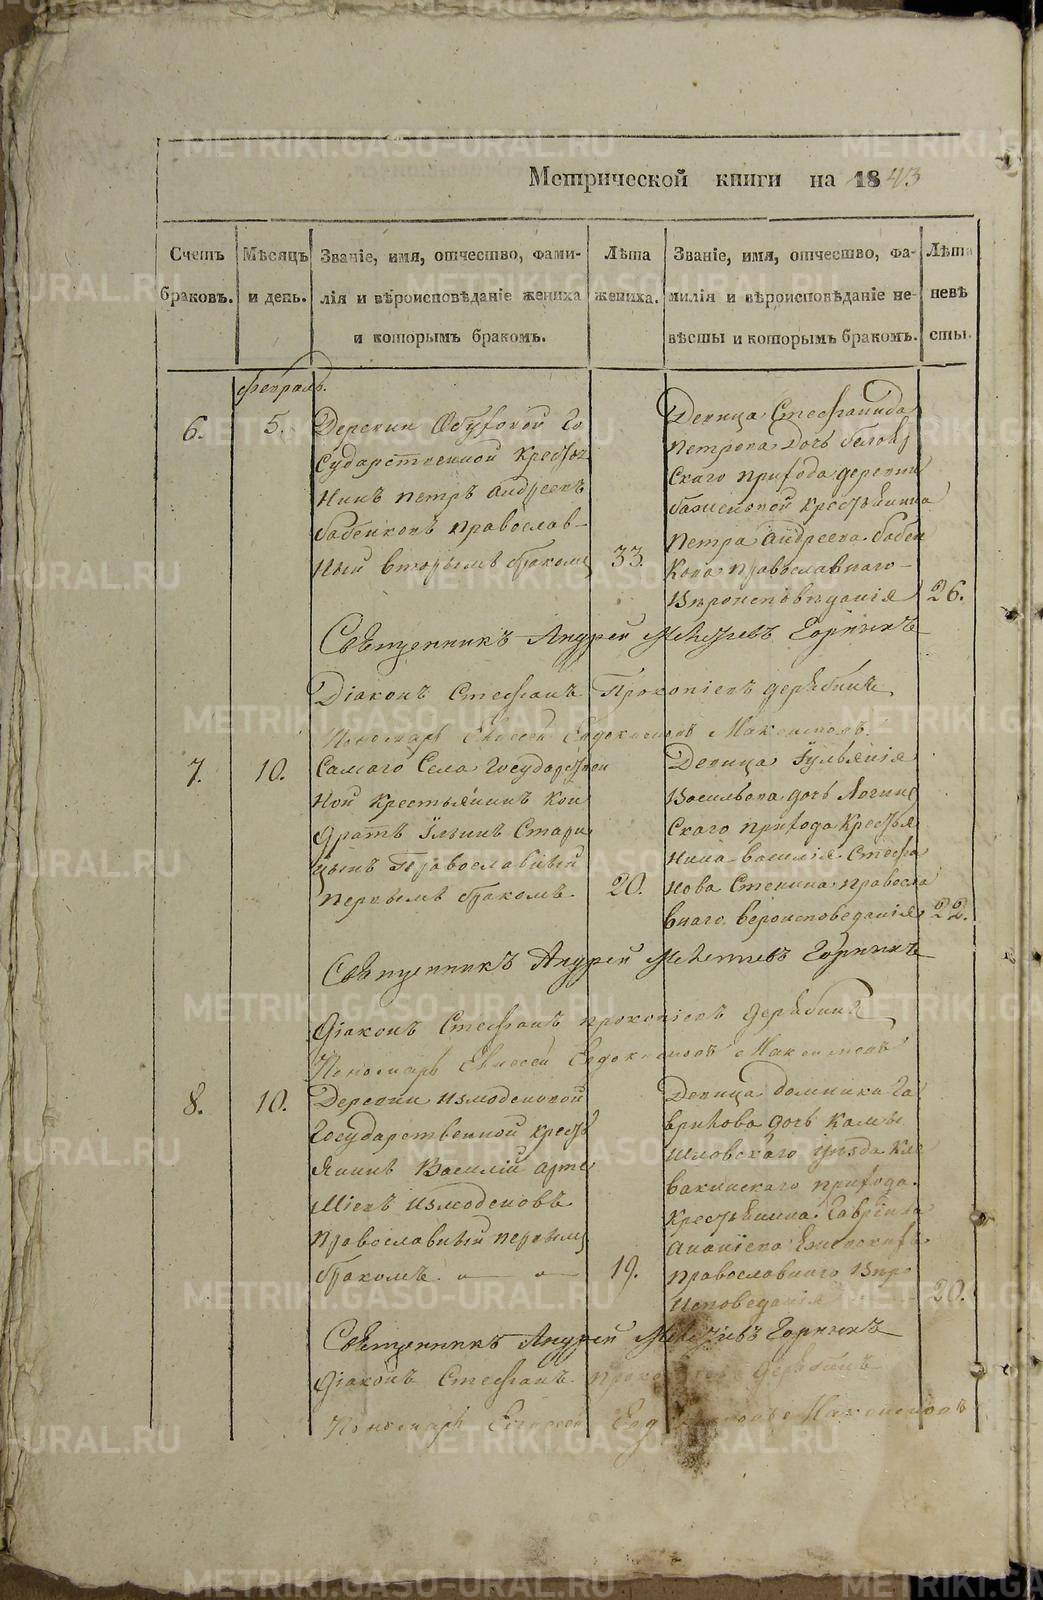 Метрической книги на 1843
Счетъ браковъ.
Мѣсяцъ и день.
Званіе, имя, отчество, фами-
лія и вѣроисповѣданіе жениха
и которымъ бракомъ.
Лѣта жениха.
Званіе, имя, отчество, фа-
милія и вѣроисповѣданіе не-
вѣсты и которымъ бракомъ.
Лѣта невѣ
сты.
февраль.
6.
5.
Деревни Обуховой Го
сударственной Крестья
нинъ Петръ Андреевъ
бабенковъ православ-
ный вторымъ бракомъ
33.
Девица Стефанида
Петрова дочь
скаго прихода деревни
крестьянина
Петра Андреева бабен
кова православнаго
Вѣроисповѣданія
26.
Священникъ Андрей Горныхъ
Діаконъ Стефанъ Прокопіевъ дерябинъ
Пономарь Елисей Евдокимовъ Максимовъ.
7.
10.
Самаго Села Государствен
ной крестьянинъ Кон
дратъ Ильинъ Стари
цынъ Православный
первымъ бракомъ
20.
Девица Іульянія
Васильева дочь Логин
скаго прихода Крестья
нина василія Стефа
нова Степина правосла
внаго вероисповеданія
22.
Священникъ Андрей Горныхъ
Діаконъ Стефанъ прокопіевъ дерябинъ
Пономарь Елисей Евдокимовъ Максимовъ
8.
10.
Деревни измоденовой
Государственной кресть
янинъ Василій арте
міевъ Измоденовъ
Православный первымъ
бракомъ.
19.
Девица домника Га
врилова дочь камы
шловскаго уезда кле
вакинскаго прихода
крестьянина Гавріила
Ананіева
православнаго Вѣро
исповеданія
20.
Священникъ Андрей Горныхъ
Діаконъ Стефанъ дерябинъ
Пономарь Елисей Максимовъ
METRIKI.GASO-URAL.RU